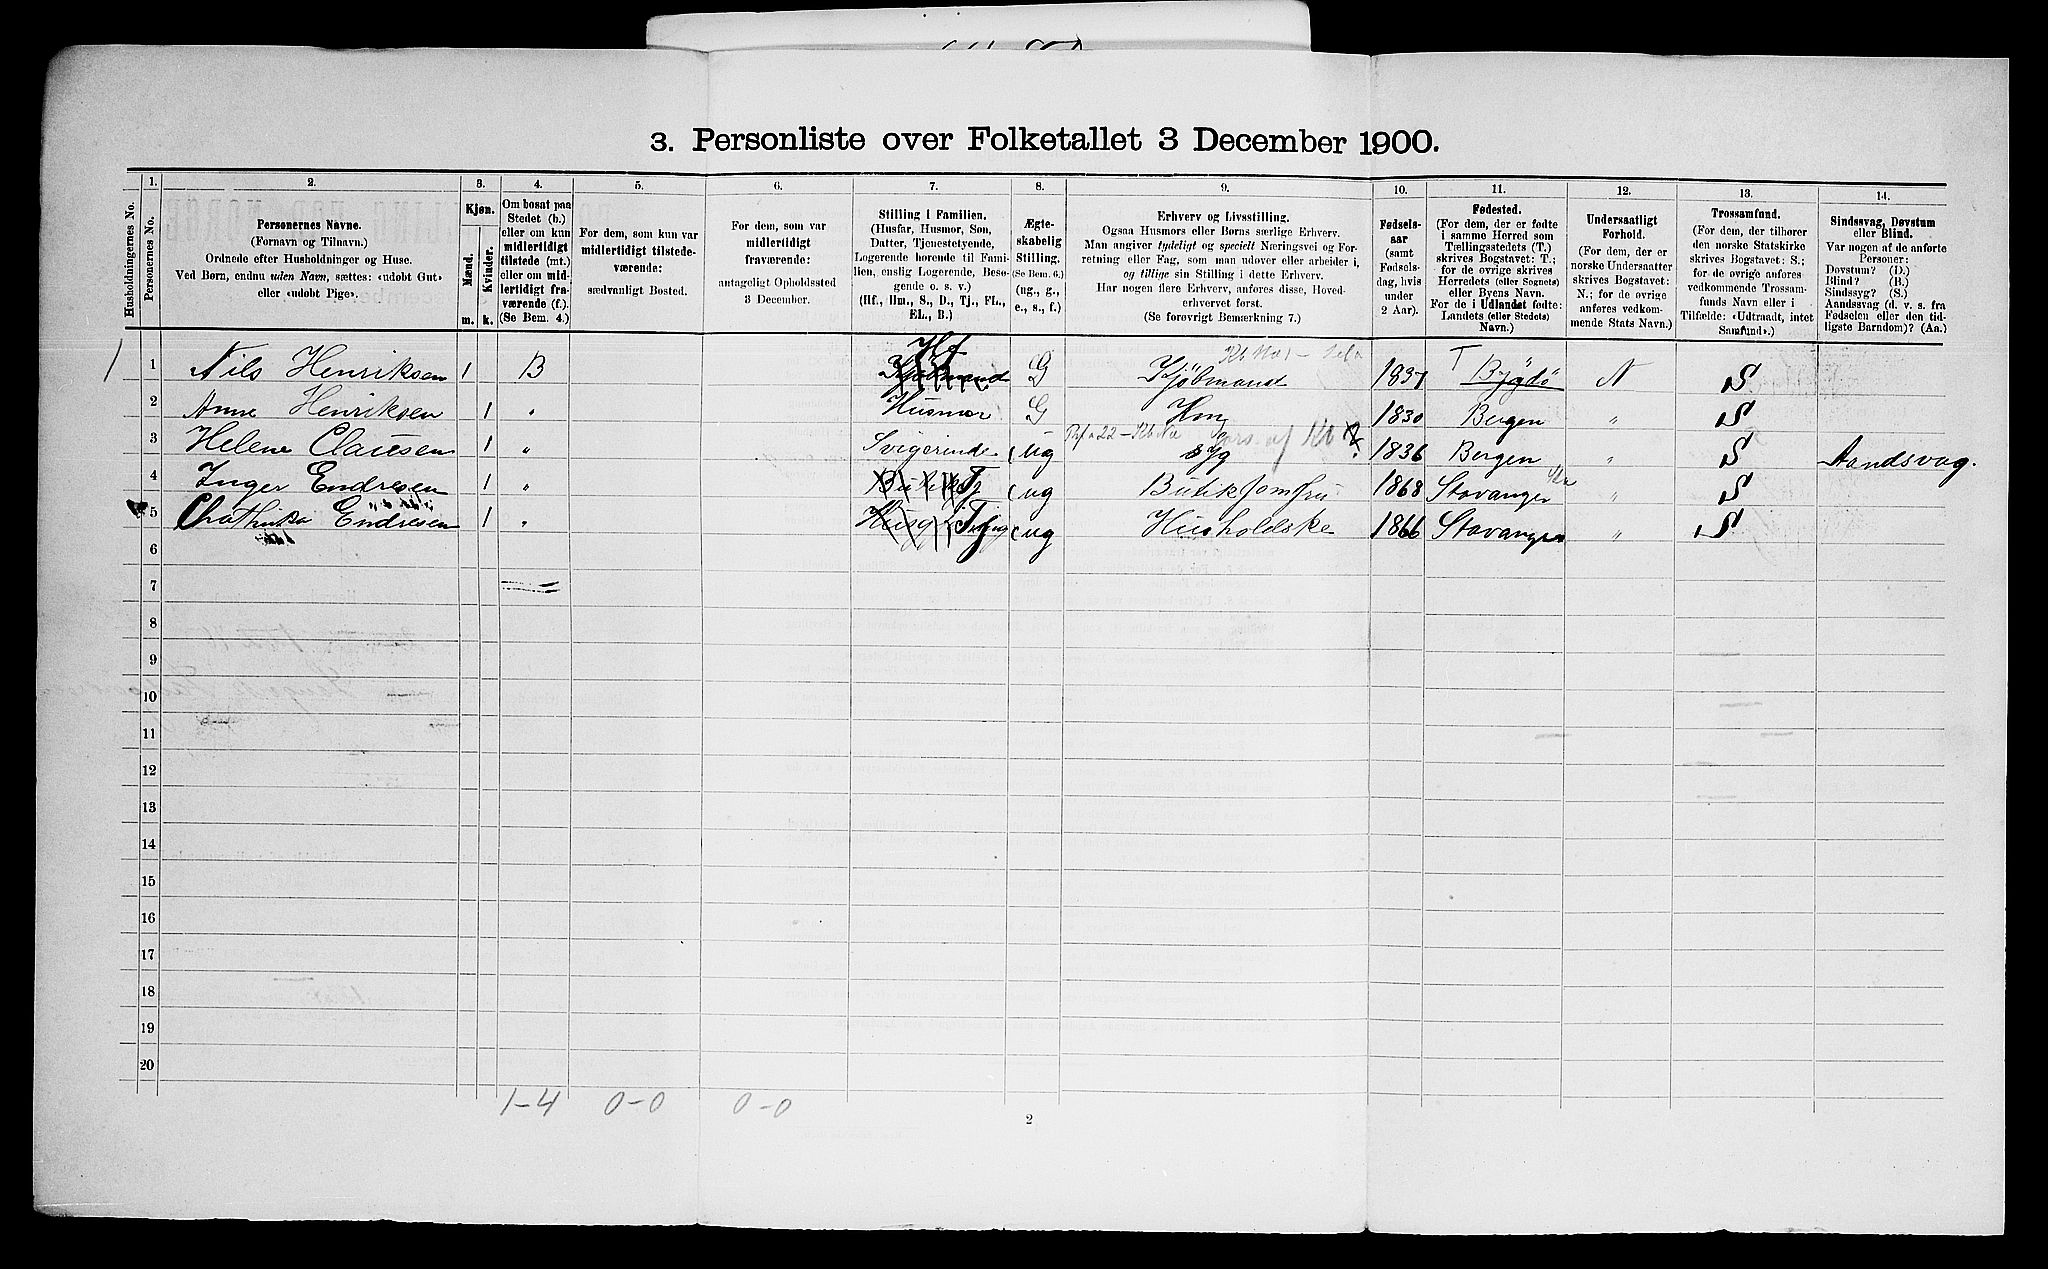 3. Personliste over Folketallet 3 December 1900.
Husholdningernes No.
1.
Personernes No.
2.
Personernes Navne.
(Fornavn og Tilnavn.)
Ordnede efter Husholdninger og Huse.
Ved Børn, endnu uden Navn, sættes: «udøbt Gut»
eller «udøbt Pige».
3.
Kjøn.
Mænd.
Kvinder.
m.
k.
4.
Om bosat paa
Stedet (b.)
eller om kun
midlertidigt
tilstede (mt.)
eller om mid-
lertidigt fra-
værende (f.).
(Se Bem. 4.)
5.
For dem, som kun var
midlertidigt tilstede-
værende:
sædvanligt Bosted.
6.
For dem, som var
midlertidigt
fraværende:
antageligt Opholdssted
3 December.
7.
Stilling i Familien.
(Husfar, Husmor, Søn,
Datter, Tjenestetyende,
Logerende hørende til Fami-
lien, enslig Logerende, Besø-
gende o. s. v.)
(Hf., Hm., S., D., Tj., FL.,
EL., B.)
8.
Ægte-
skabelig
Stilling.
(Se Bem. 6.)
(ug., g.,
e., s., f.)
9.
Erhverv og Livsstilling.
Ogsaa Husmors eller Børns særlige Erhverv.
Man angiver tydeligt og specielt Næringsvei og For-
retning eller Fag, som man udover eller arbeider i,
og tillige sin Stilling i dette Erhverv.
Har nogen flere Erhverv, anføres disse, Hoved-
erhvervet først.
(Se forøvrigt Bemærkning 7.)
10.
Fødsels-
aar
(samt
Fødsels-
dag, hvis
under
2 Aar).
11.
Fødested.
(For dem, der er fødte
i samme Herred som
Tællingsstedets (T.)
skrives Bogstavet: T.;
for de øvrige skrives
Herredets (eller Sognets)
eller Byens Navn.
For de i Udlandet fødte:
Landets (eller Stedets)
Navn.)
12.
Undersaatligt
Forhold.
(For dem, der er
norske Undersaatter
skrives Bogstavet:
N.; for de øvrige
anføres vedkom-
mende Stats Navn.)
13.
Trossamfund.
(For dem, der tilhører
den norske Statskirke
skrives Bogstavet: S.;
for de øvrige anføres
vedkommende Trossam-
funds Navn eller i
Tilfælde: «Udtraadt, intet
Samfund».)
14.
Sindssvag, Døvstum
eller Blind.
Var nogen af de anførte
Personer:
Døvstum? (D.)
Blind? (B.)
Sindssyg? (S.)
Aandssvag (d. v. s. fra
Fødselen eller den tid-
ligste Barndom)? (Aa.)
1 1 Nils Henriksen 1 B Hf G Kjöbmand 1837 T Bygdö N S
2 Anne Henriksen 1 " Husmor G Hm 1830 Bergen " S
3 Helene Clausen 1 " Svigerinde ug 1836 Bergen " S Aandsvag.
4 Inger Endresen 1 " Tj ug Butikjomfru 1868 Stavanger " S
5 Endresen 1 " ug Husholdske 1866 Stavanger " S
6
7
8
9
10
11
12
13
14
15
16
17
18
19
20
1-4 0-0 0-0
2